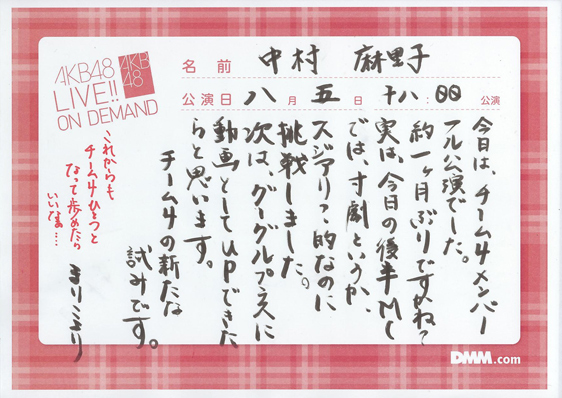 AKB48
LIVE!!
ON DEMAND
AKB
48
名前 中村 麻里子
公演日 八月五日 十八:00 公演
今日は、チーム4メンバー
フル公演でした。
約一ヶ月ぶりですかね?
実は、今日の後半MC
では、寸劇というか、
スジアリ?的なのに
挑戦しました。
次は、グーグルプラスに
動画としてUPできた
らと思います。
チーム4の新たな
試みです。
これからも
チーム4ひとつと
なって歩めたら
いいなぁ....
まりこより
DMM.com